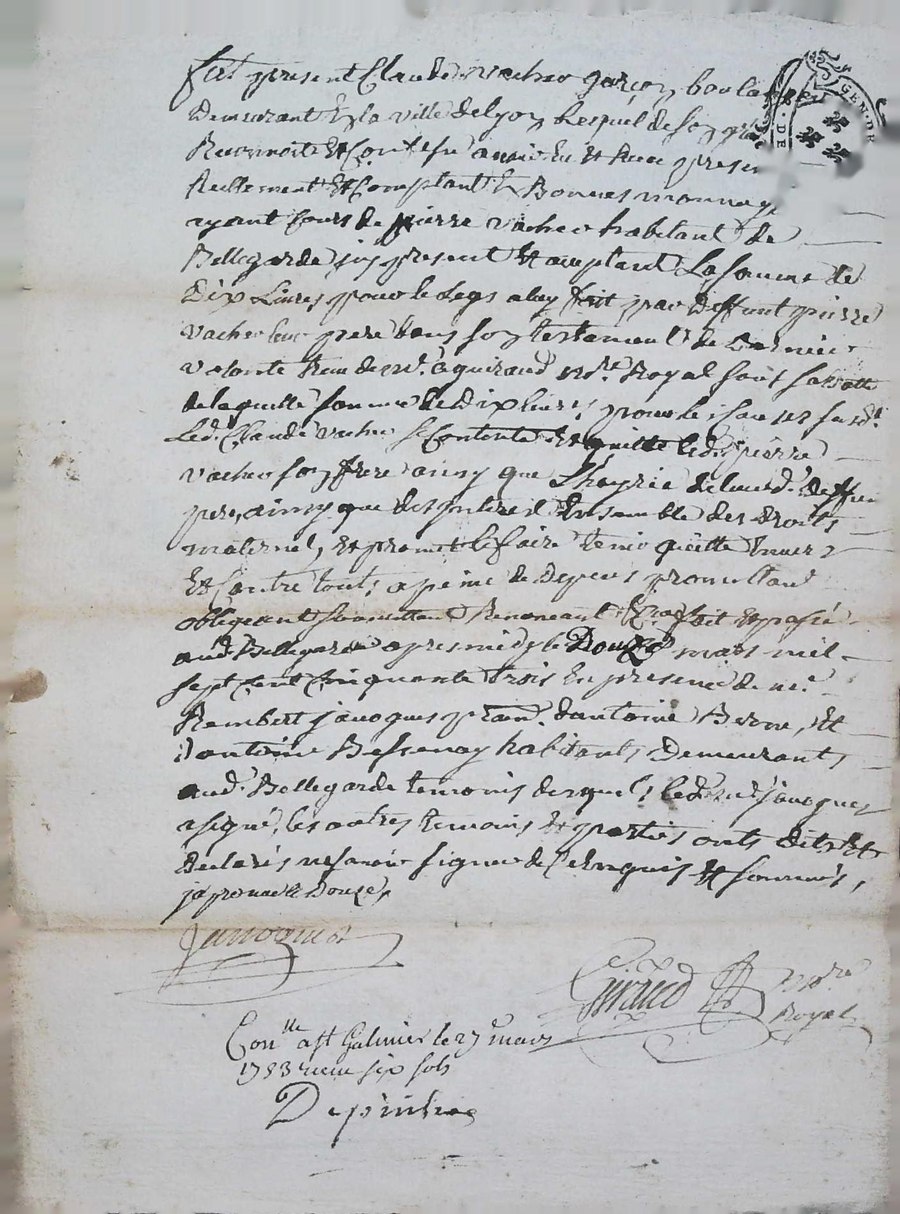 fut present Claude vacher garçon boulanger
Demeurant En la ville de lyon Lequel de son gré
Reconnoit Et Confesse avoir Eu Et Receu presen
Reellement Et Comptant En Bonnes monnoye
ayant Cours de pierre vacher habitant de
Bellegarde, icy present Et acceptant La somme de
Dix Livres pour le Legs a luy fait par Deffunt pierre
vacher leur pere dans son testament de derniere
volonté Receu de me. Royal
de laquelle somme de Dix livres, pour le susd.
Led. Claude vacher se Contente Et quitte led. pierre
vacher son frere ainsy que L'hoyrie de leurd. deffun
pere, ainsy que Ensemble des droits
maternel, Et promet le faire tenir quitte Envers
Et Contre touts a peine de Depens promettant
obligeant soumettant Renonçant Et fait et passé
aud. Bellegarde apres midy le Douze mars mil
sept Cent Cinquante trois En presence de me.
Rembert javogues d'antoine Et
d'antoine Bessenay habitants Demeurants
aud. Bellegarde temoins desquels led. javogues
a signé, les autres temoins Et parties onts dit Et
declarés ne savoir signer de Ce Enquis Et sommés,
Douze,
Javogues
Giraud No.re
Royal
GEN. DE
DE
Con.lle a St Galmier le 27 mars
1753 receu six sols